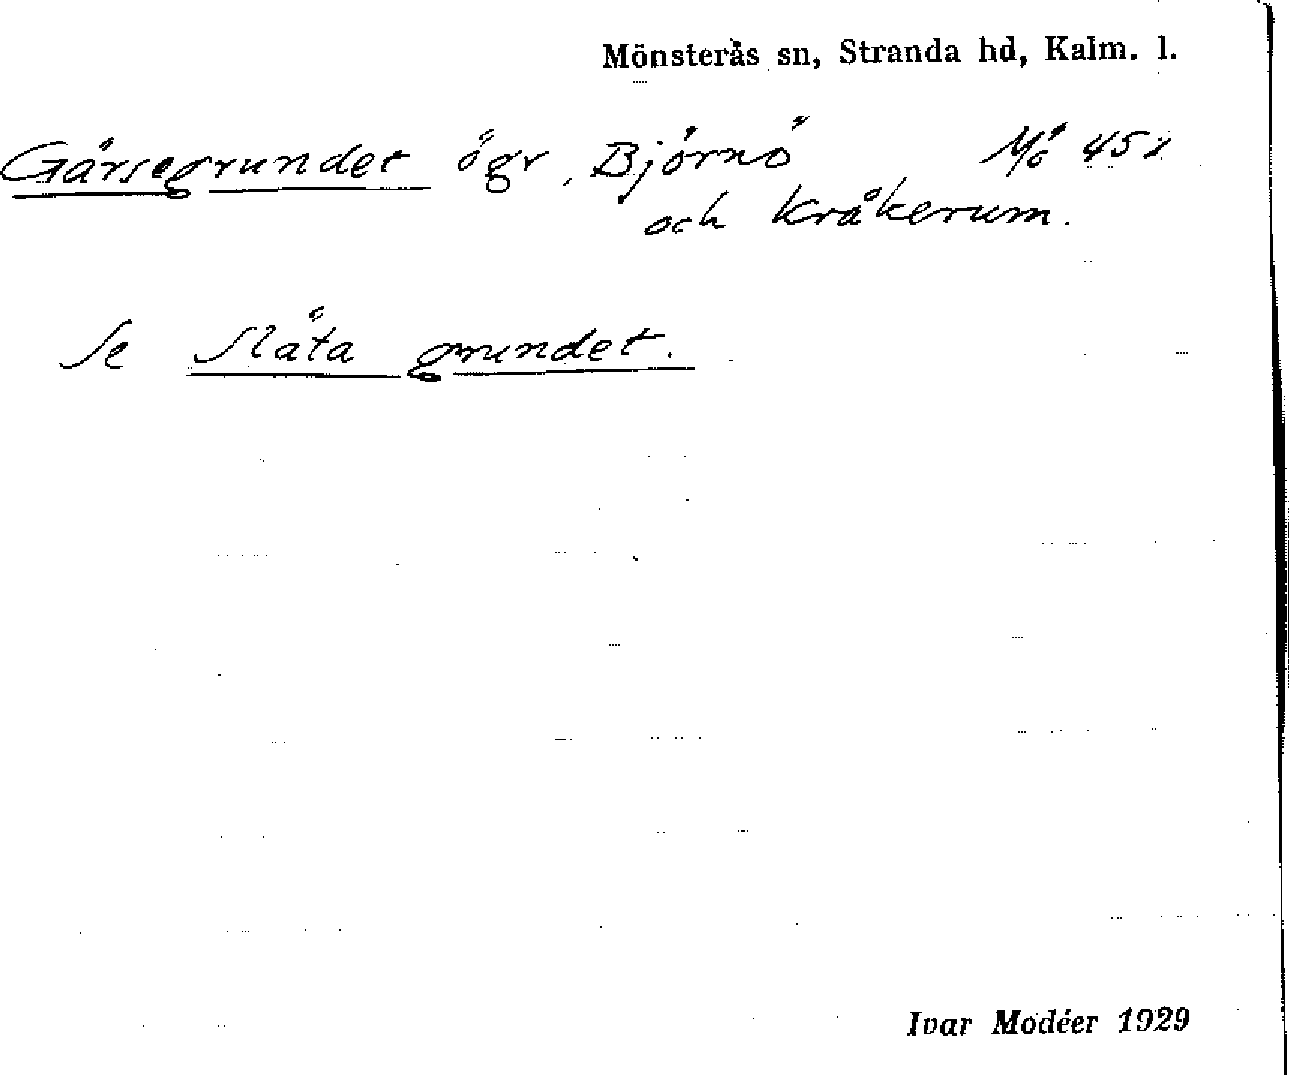 Mönsterås sn, Stranda hd, Kalm. l.
Gärsegrundet ögr, Björnö Mö 451
och Kråkerum.
Se Släta grundet.
Ivar Modéer 1929